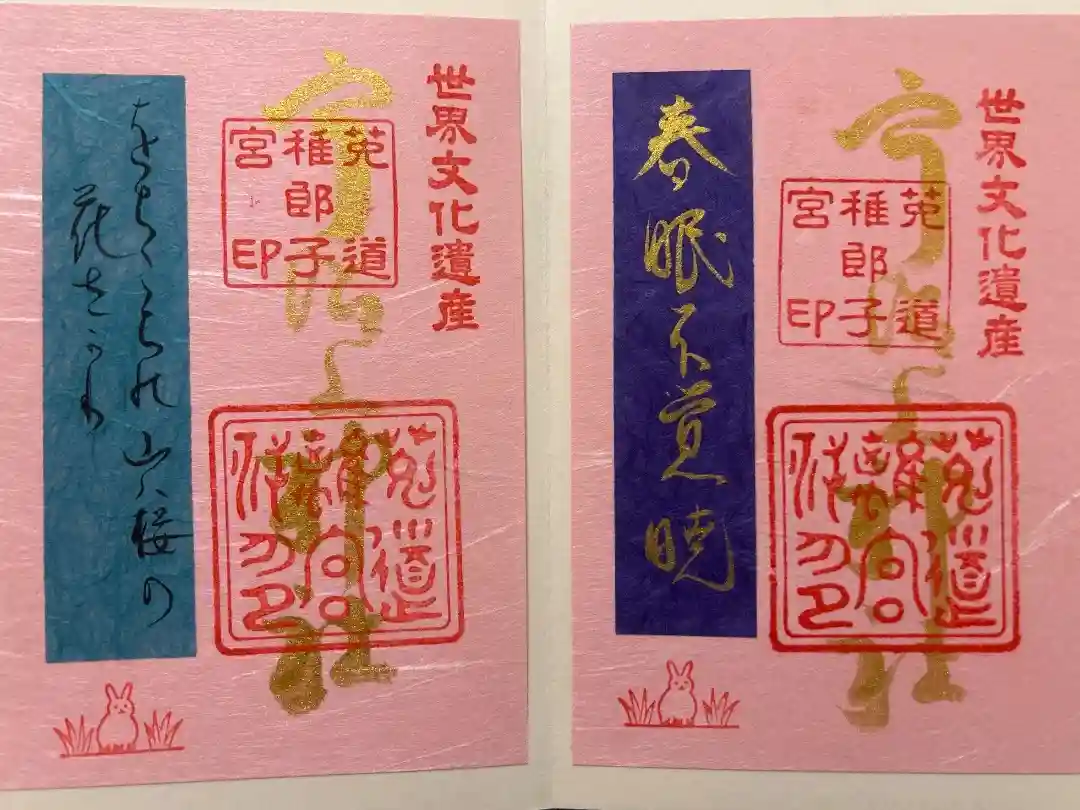 世界文化遺産
宇治上神社
菟道
稚郎子
宮印
春眠不覚暁
世界文化遺産
宇治上神社
菟道
稚郎子
宮印
をちこちの山ハ桜の
花さかり